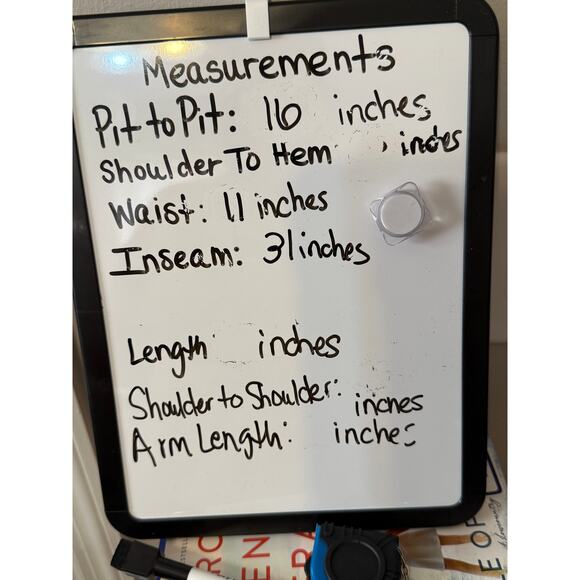 Measurements
Pit to Pit: 16 inches
Shoulder To Hem inches
Waist: 11 inches
Inseam: 31 inches
Length inches
Shoulder to Shoulder: inches
Arm Length: inches
E OF